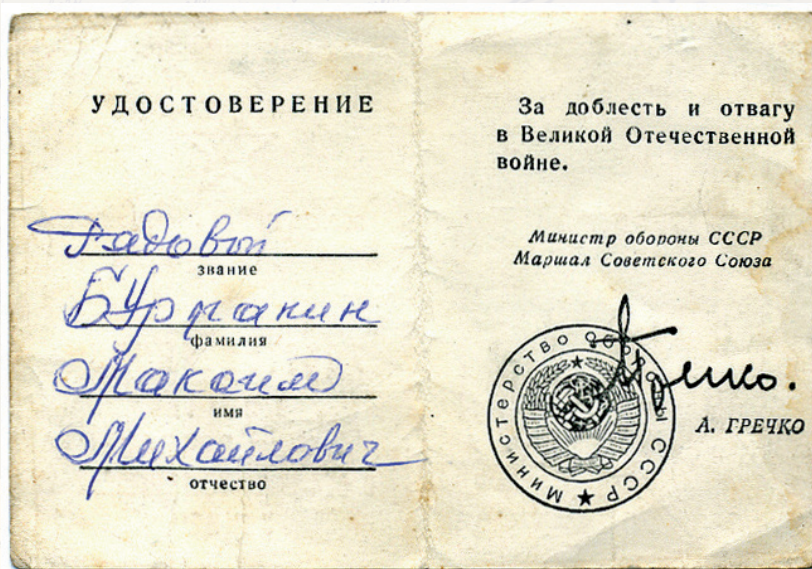 УДОСТОВЕРЕНИЕ
Рядовой
звание
фамилия
Максим
имя
Михайлович
отчество
За доблесть и отвагу
в Великой Отечественной
войне.
Министр обороны СССР
Маршал Советского Союза
МИНИСТЕРСТВО ОБОРОНЫ СССР
А. ГРЕЧКО